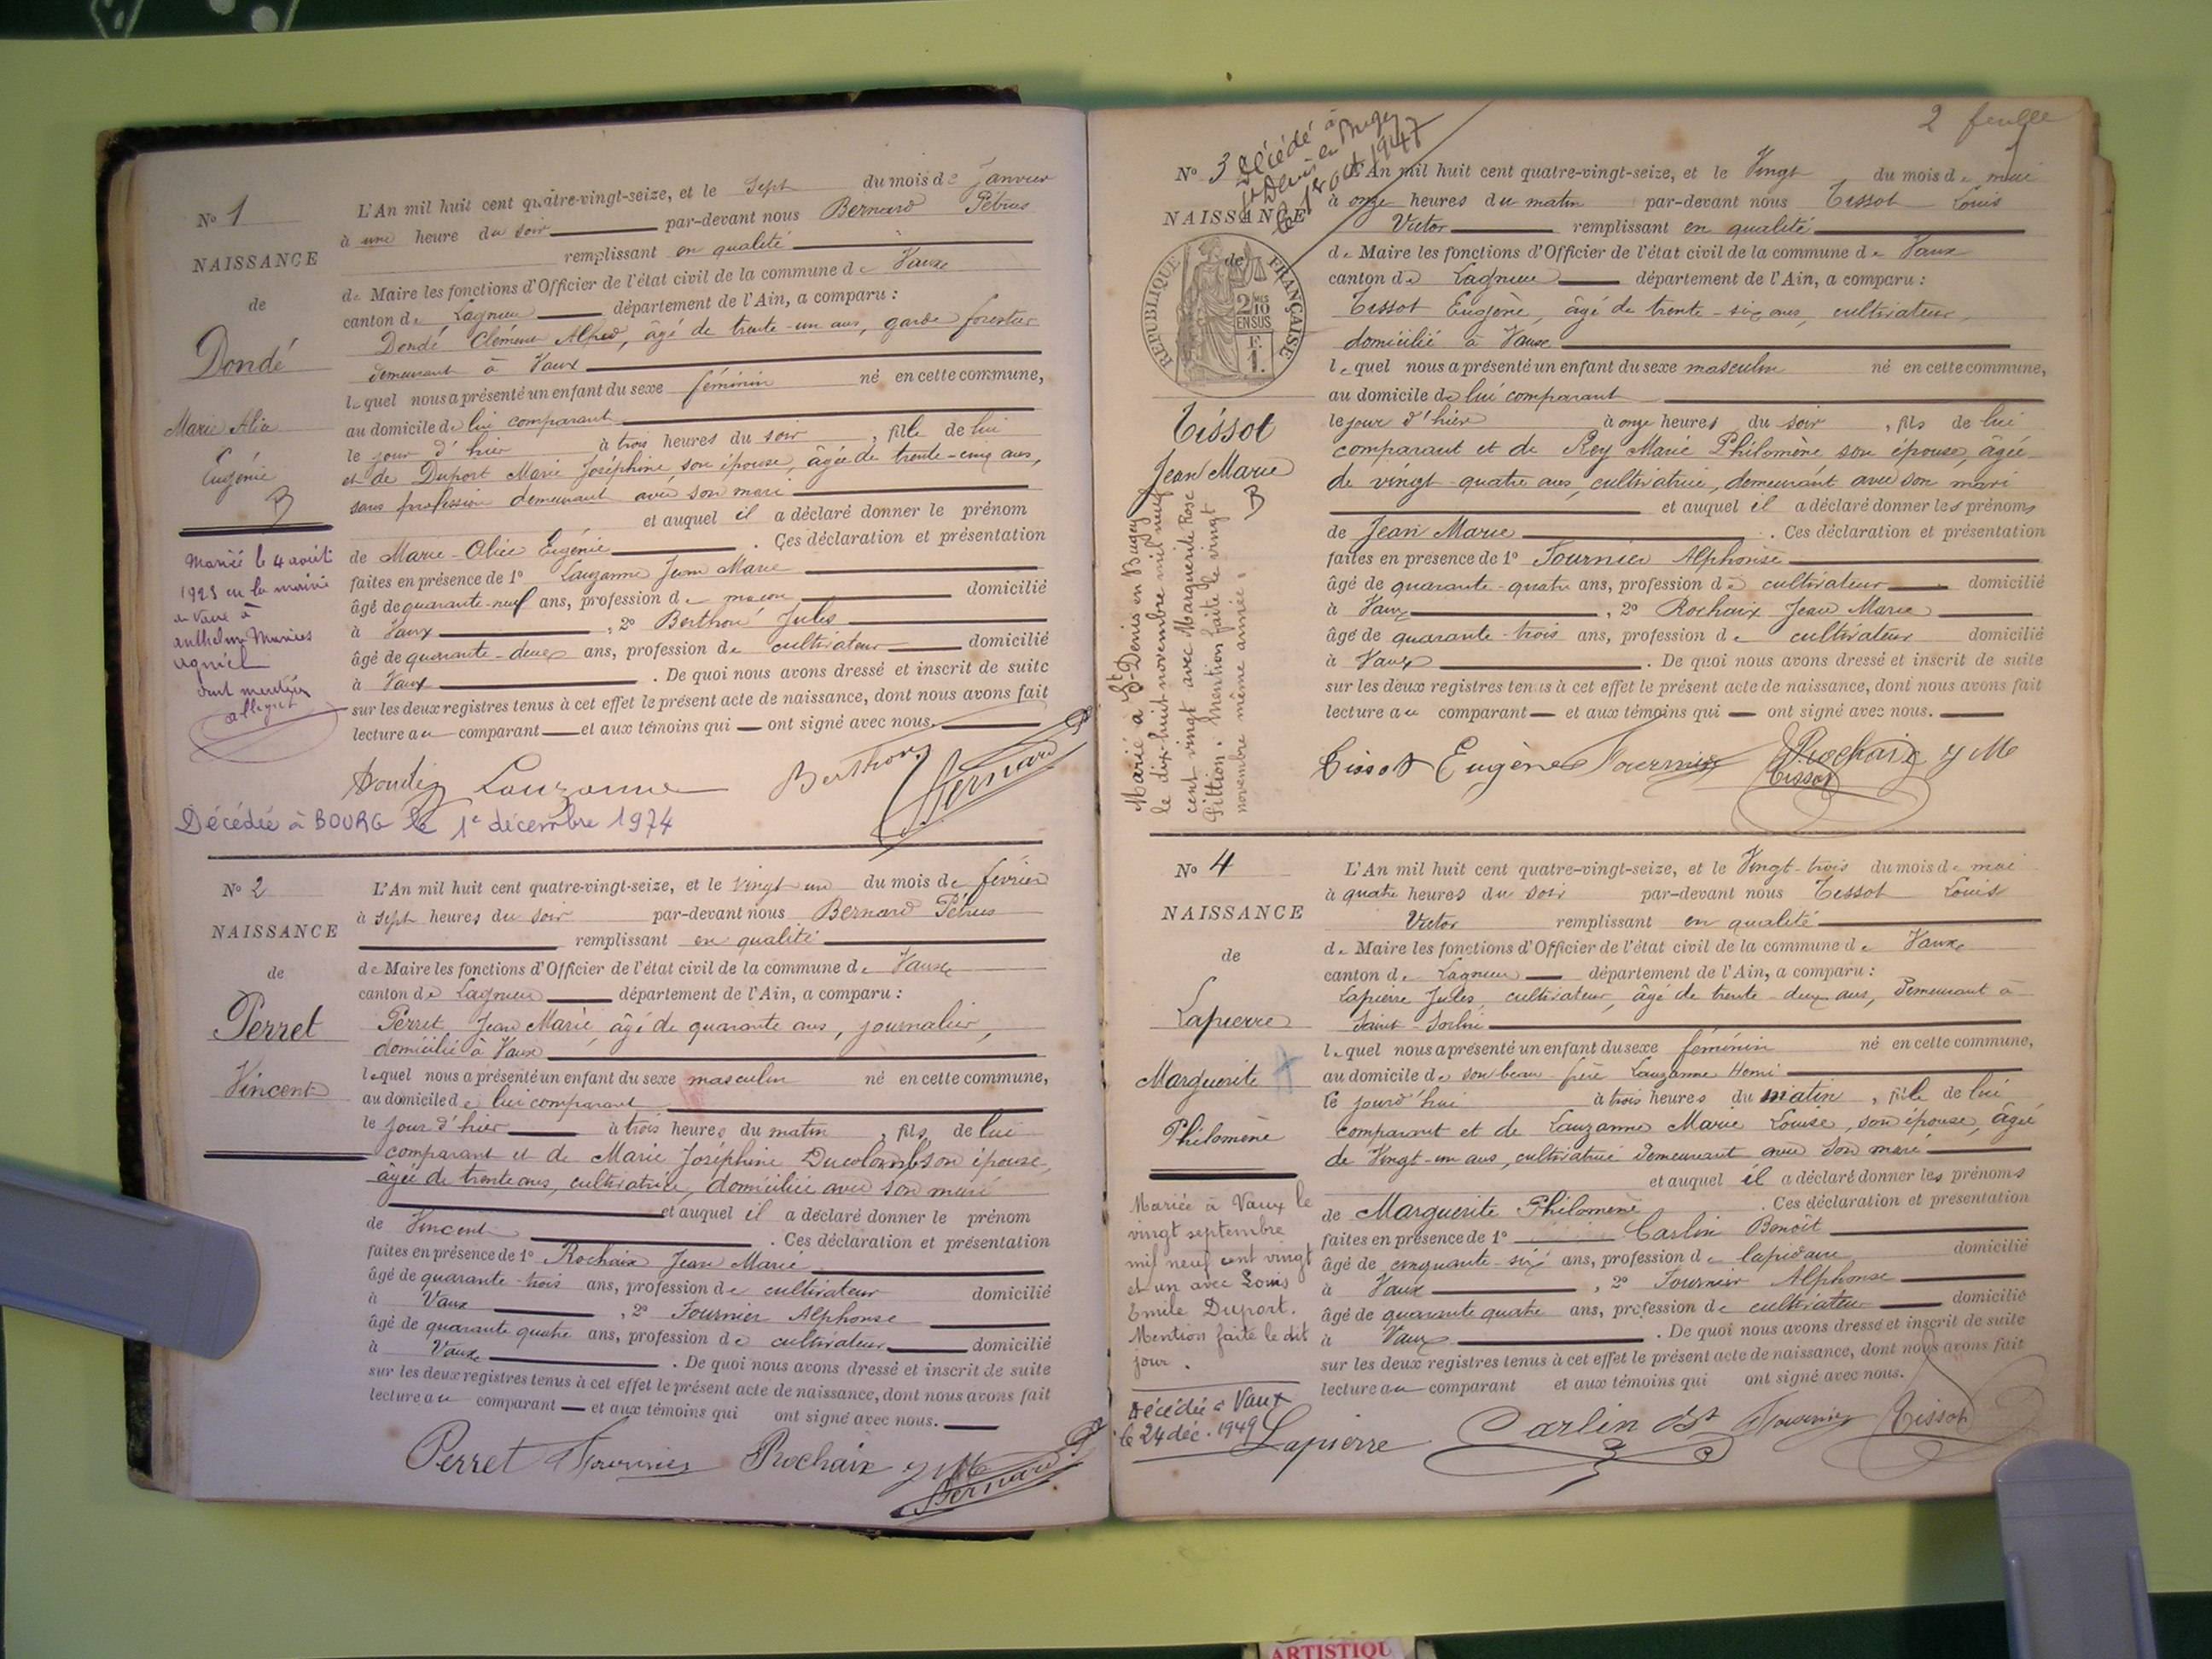 N° 1
NAISSANCE
de
Dondé
Marie Alice
Eugénie
B
Marié le 4 août
1923 en la mairie
de Vaux à
anthelme Maurice
Agniel
dont mention
L'An mil huit cent quatre-vingt-seize, et le Sept du mois de Janvier
à une heure du soir par-devant nous Bernard Pétrus
remplissant en qualité
de Maire les fonctions d'Officier de l'état civil de la commune de Vaux
canton de Lagnieu département de l'Ain, a comparu :
Dondé Clément Alfred, âgé de trente-un ans, garde forestier
demeurant à Vaux
lequel nous a présenté un enfant du sexe féminin né en cette commune,
au domicile de lui comparant
le jour d'hier à trois heures du soir, fille de lui
et de Duport Marie Joséphine, son épouse, âgée de trente-cinq ans,
sans profession demeurant avec son mari
et auquel il a déclaré donner le prénom
de Marie-Alice Eugénie. Ces déclaration et présentation
faites en présence de 1° Lauzanne Jean Marie
âgé de quarante-neuf ans, profession de maçon domicilié
à Vaux, 2° Berthou Jules
âgé de quarante-deux ans, profession de cultivateur domicilié
à Vaux. De quoi nous avons dressé et inscrit de suite
sur les deux registres tenus à cet effet le présent acte de naissance, dont nous avons fait
lecture au comparant et aux témoins qui ont signé avec nous.
Lauzanne Berthou Bernard
Décédée à BOURG le 1e décembre 1974
N° 2
NAISSANCE
de
Perret
Vincent
L'An mil huit cent quatre-vingt-seize, et le vingt un du mois de février
à sept heures du soir par-devant nous Bernard Pétrus
remplissant en qualité
de Maire les fonctions d'Officier de l'état civil de la commune de Vaux
canton de Lagnieu département de l'Ain, a comparu :
Perret, Jean Marie, âgé de quarante ans, journalier,
domicilié à Vaux
lequel nous a présenté un enfant du sexe masculin né en cette commune,
au domicile de lui comparant
le jour d'hier à trois heures du matin, fils de lui
comparant et de Marie Joséphine Ducolomb son épouse,
âgée de trente ans, cultivatrice, domiciliée avec son mari
et auquel il a déclaré donner le prénom
de Vincent. Ces déclaration et présentation
faites en présence de 1° Rochaix Jean Marie
âgé de quarante-trois ans, profession de cultivateur domicilié
à Vaux, 2° Fournier Alphonse
âgé de quarante quatre ans, profession de cultivateur domicilié
à Vaux. De quoi nous avons dressé et inscrit de suite
sur les deux registres tenus à cet effet le présent acte de naissance, dont nous avons fait
lecture au comparant et aux témoins qui ont signé avec nous.
Perret Fournier Rochaix J M Bernard
2 feuille
N° 3
Décédé à
St Denis en Bugey
le 18 oct 1947
NAISSANCE
de
RÉPUBLIQUE FRANÇAISE
2/10
EN SUS
F.
1.
Tissot
Jean Marie
B
Marié à St-Denis en Bugey
le dix-huit novembre mil neuf
cent vingt avec Marguerite Rose
Pittion. Mention faite le vingt
novembre même année.
L'An mil huit cent quatre-vingt-seize, et le Vingt du mois de mai
à onze heures du matin par-devant nous Tissot Louis
Victor remplissant en qualité
de Maire les fonctions d'Officier de l'état civil de la commune de Vaux
canton de Lagnieu département de l'Ain, a comparu :
Tissot Eugène, âgé de trente-six ans, cultivateur,
domicilié à Vaux
lequel nous a présenté un enfant du sexe masculin né en cette commune,
au domicile de lui comparant
le jour d'hier à onze heures du soir, fils de lui
comparant et de Rey Marie Philomène, son épouse, âgée
de vingt-quatre ans, cultivatrice, demeurant avec son mari
et auquel il a déclaré donner les prénoms
de Jean Marie. Ces déclaration et présentation
faites en présence de 1° Fournier Alphonse
âgé de quarante-quatre ans, profession de cultivateur domicilié
à Vaux, 2° Rochaix Jean Marie
âgé de quarante-trois ans, profession de cultivateur domicilié
à Vaux. De quoi nous avons dressé et inscrit de suite
sur les deux registres tenus à cet effet le présent acte de naissance, dont nous avons fait
lecture au comparant et aux témoins qui ont signé avec nous.
Tissot Eugène Fournier Rochaix J M
Tissot
N° 4
NAISSANCE
de
Lapierre
Marguerite
Philomène
Mariée à Vaux le
vingt septembre
mil neuf cent vingt
et un avec Louis
Emile Duport.
Mention faite le dit
jour.
Décédée à Vaux
le 24 déc. 1949
L'An mil huit cent quatre-vingt-seize, et le Vingt-trois du mois de mai
à quatre heures du soir par-devant nous Tissot Louis
Victor remplissant en qualité
de Maire les fonctions d'Officier de l'état civil de la commune de Vaux
canton de Lagnieu département de l'Ain, a comparu :
Lapierre Jules, cultivateur, âgé de trente-deux ans, demeurant à
Saint-Sorlin
lequel nous a présenté un enfant du sexe féminin né en cette commune,
au domicile de son beau-frère Lauzanne Henri
le jourd'hui à trois heures du matin, fille de lui
comparant et de Lauzanne Marie Louise, son épouse, âgée
de Vingt-un ans, cultivatrice demeurant avec son mari
et auquel il a déclaré donner les prénoms
de Marguerite Philomène. Ces déclaration et présentation
faites en présence de 1° Carlin Benoît
âgé de cinquante-six ans, profession de lapidaire domicilié
à Vaux, 2° Fournier Alphonse
âgé de quarante quatre ans, profession de cultivateur domicilié
à Vaux. De quoi nous avons dressé et inscrit de suite
sur les deux registres tenus à cet effet le présent acte de naissance, dont nous avons fait
lecture au comparant et aux témoins qui ont signé avec nous.
Lapierre Carlin Bt Fournier Tissot
ARTISTIQU